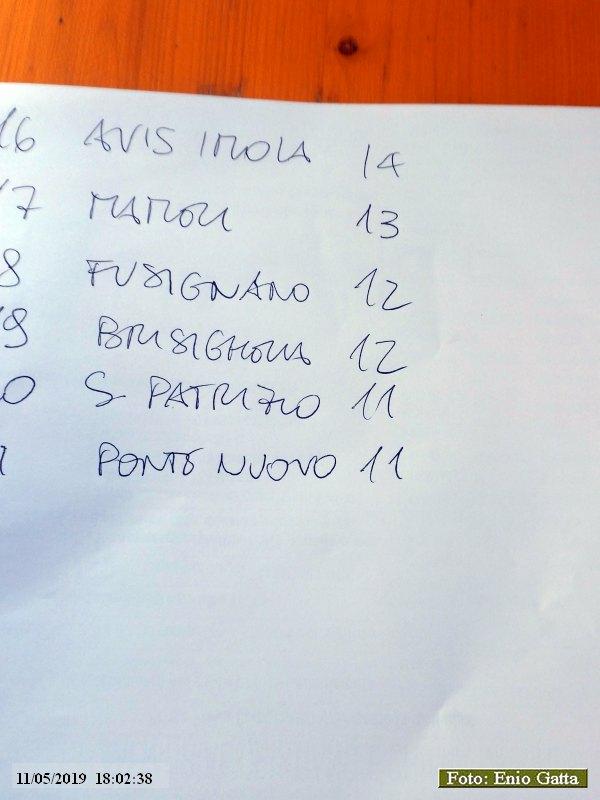 16 AVIS IMOLA 14
17 MAMOLI 13
8 FUSIGNANO 12
19 BRISIGHELLA 12
0 S. PATRIZIO 11
1 PONTE NUOVO 11
11/05/2019 18:02:38
Foto: Enio Gatta